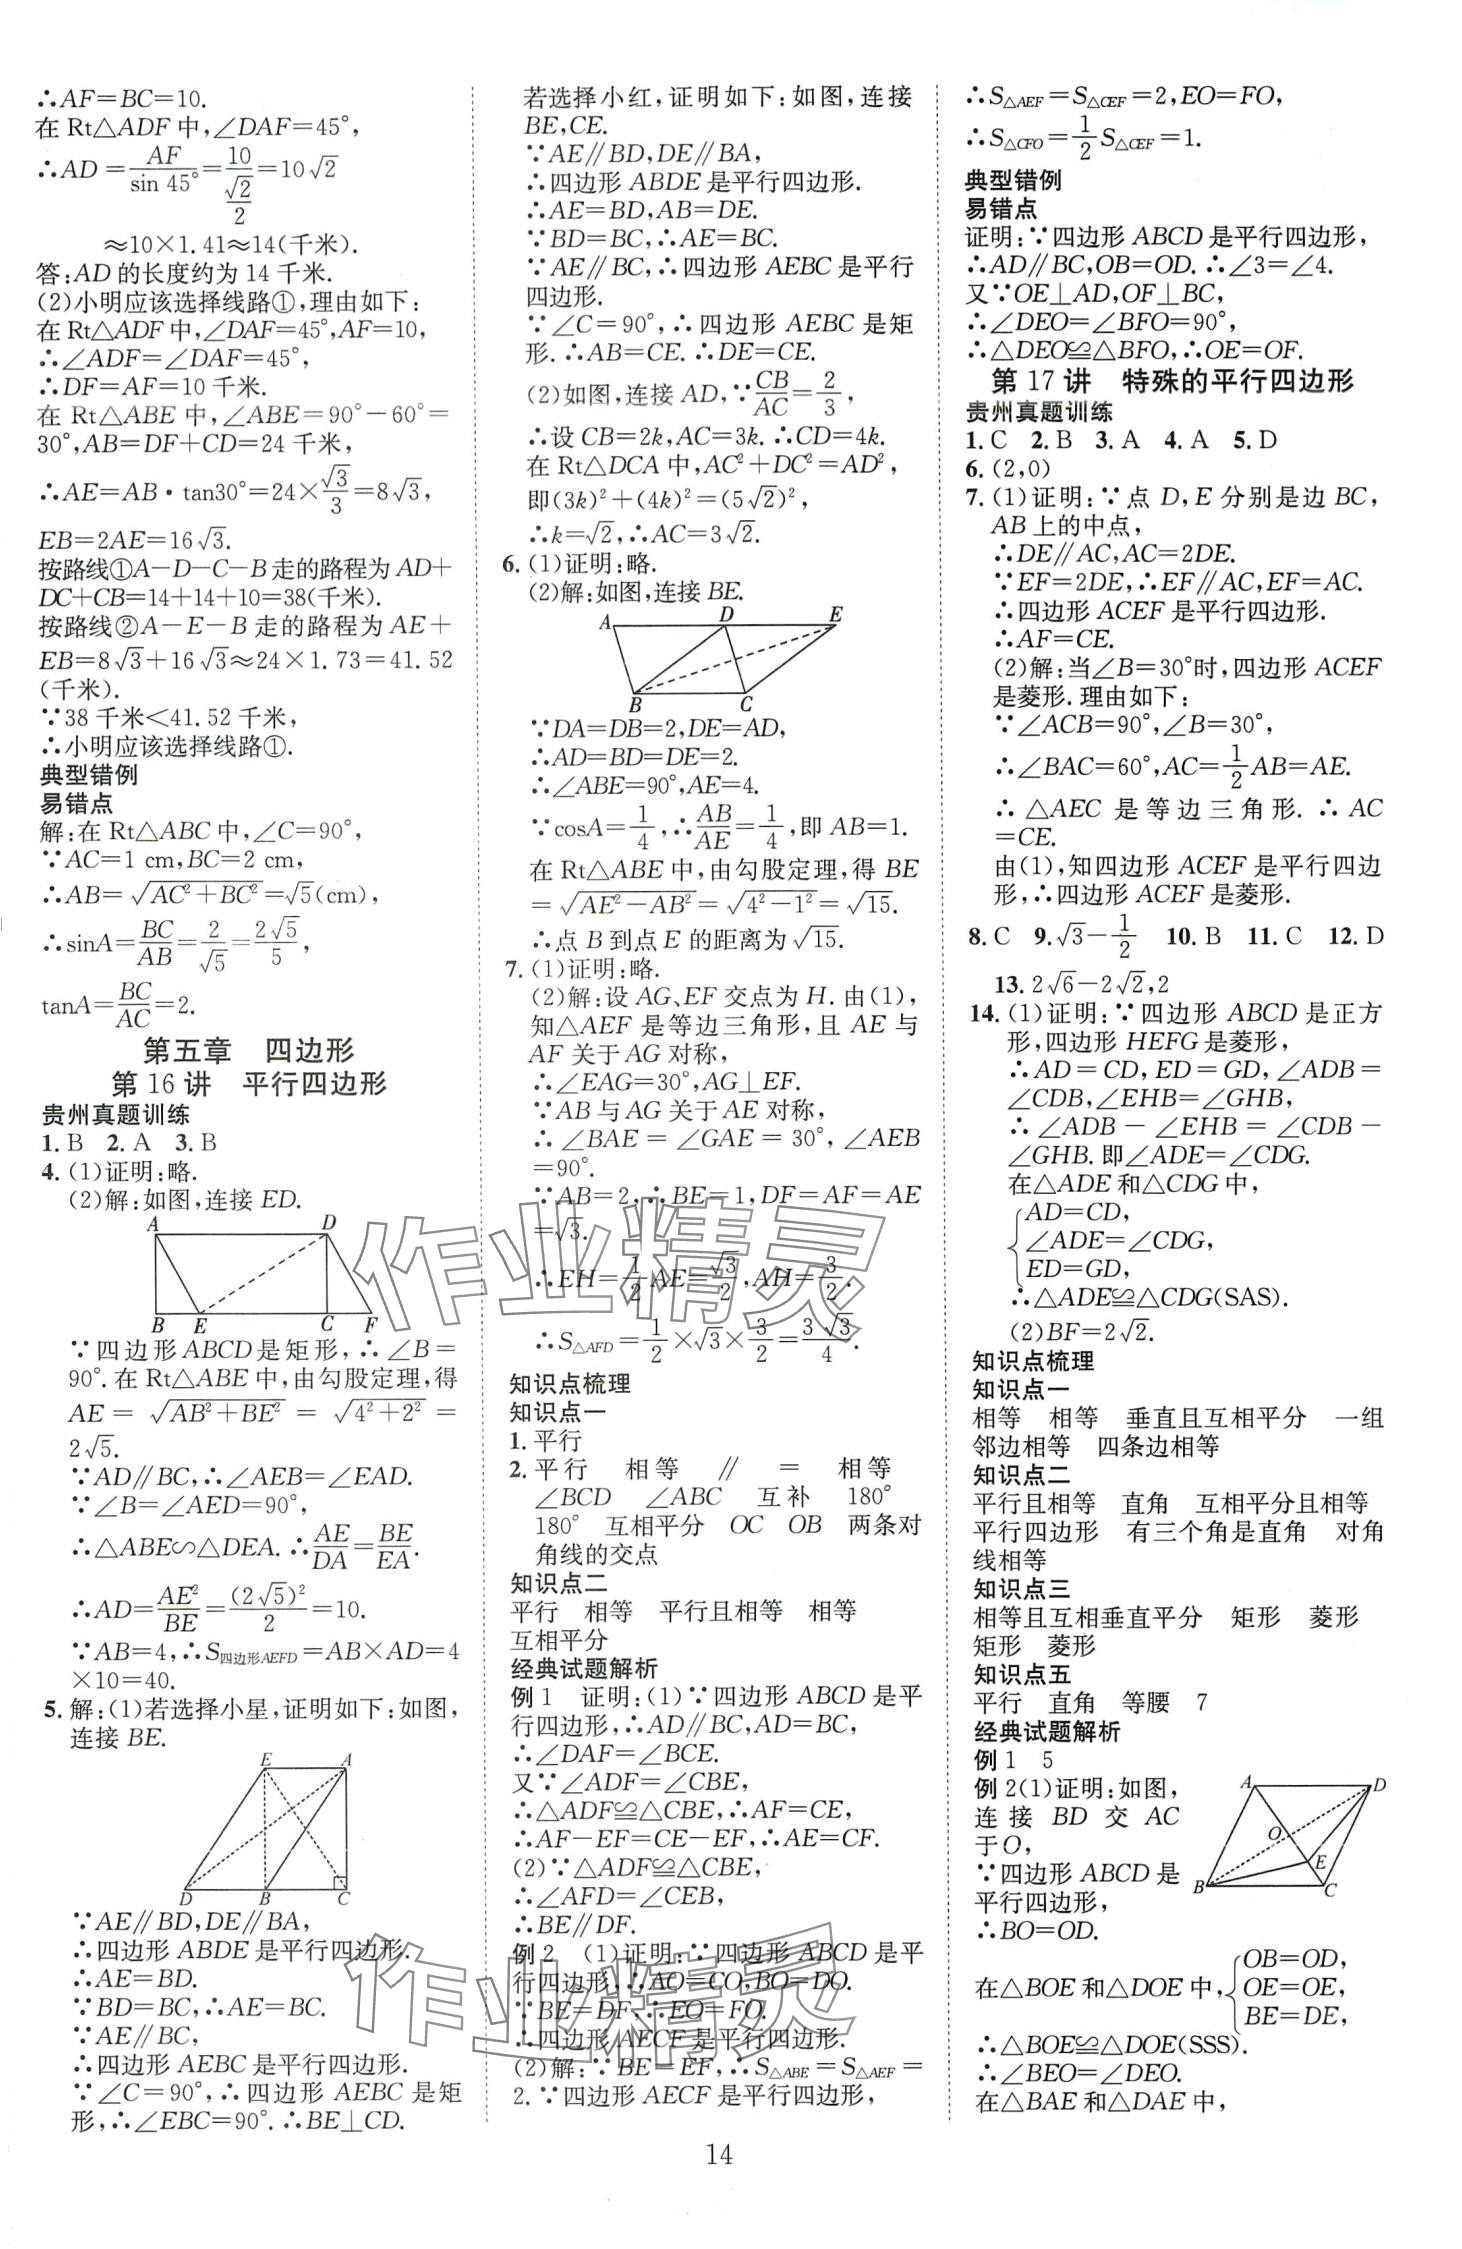 ∴AF=BC=10.
在 Rt△ADF 中,∠DAF=45°,
∴AD=AF/sin 45°=10/(√2/2)=10√2
≈10×1.41≈14(千米).
答:AD 的长度约为 14 千米.
(2)小明应该选择线路①,理由如下:
在 Rt△ADF 中,∠DAF=45°,AF=10,
∴∠ADF=∠DAF=45°,
∴DF=AF=10 千米.
在 Rt△ABE 中,∠ABE=90°-60°=
30°,AB=DF+CD=24 千米,
∴AE=AB·tan30°=24×√3/3=8√3,
EB=2AE=16√3.
按路线①A-D-C-B 走的路程为 AD+
DC+CB=14+14+10=38(千米).
按路线②A-E-B 走的路程为 AE+
EB=8√3+16√3≈24×1.73=41.52
(千米).
∵38 千米<41.52 千米,
∴小明应该选择线路①.
典型错例
易错点
解:在 Rt△ABC 中,∠C=90°,
∵AC=1 cm,BC=2 cm,
∴AB=√(AC²+BC²)=√5(cm),
∴sinA=BC/AB=2/√5=2√5/5,
tanA=BC/AC=2.
第五章 四边形
第 16 讲 平行四边形
贵州真题训练
1.B 2.A 3.B
4.(1)证明:略.
(2)解:如图,连接 ED.
A D
B E C F
∵四边形 ABCD 是矩形,∴∠B=
90°.在 Rt△ABE 中,由勾股定理,得
AE=√(AB²+BE²)=√(4²+2²)=
2√5.
∵AD∥BC,∴∠AEB=∠EAD.
∵∠B=∠AED=90°,
∴△ABE∽△DEA.∴AE/DA=BE/EA.
∴AD=AE²/BE=(2√5)²/2=10.
∵AB=4,∴S四边形AEFD=AB×AD=4
×10=40.
5.解:(1)若选择小星,证明如下:如图,
连接 BE.
E A
D B C
∵AE∥BD,DE∥BA,
∴四边形 ABDE 是平行四边形.
∴AE=BD.
∵BD=BC,∴AE=BC.
∵AE∥BC,
∴四边形 AEBC 是平行四边形.
∵∠C=90°,∴四边形 AEBC 是矩
形,∴∠EBC=90°.∴BE⊥CD.
若选择小红,证明如下:如图,连接
BE,CE.
∵AE∥BD,DE∥BA,
∴四边形 ABDE 是平行四边形.
∴AE=BD,AB=DE.
∵BD=BC,∴AE=BC.
∵AE∥BC,∴四边形 AEBC 是平行
四边形.
∵∠C=90°,∴四边形 AEBC 是矩
形.∴AB=CE.∴DE=CE.
(2)如图,连接 AD,∵CB/AC=2/3,
∴设 CB=2k,AC=3k.∴CD=4k.
在 Rt△DCA 中,AC²+DC²=AD²,
即(3k)²+(4k)²=(5√2)²,
∴k=√2,∴AC=3√2.
6.(1)证明:略.
(2)解:如图,连接 BE.
A D E
B C
∵DA=DB=2,DE=AD,
∴AD=BD=DE=2.
∴∠ABE=90°,AE=4.
∵cosA=1/4,∴AB/AE=1/4,即 AB=1.
在 Rt△ABE 中,由勾股定理,得 BE
=√(AE²-AB²)=√(4²-1²)=√15.
∴点 B 到点 E 的距离为√15.
7.(1)证明:略.
(2)解:设 AG、EF 交点为 H.由(1),
知△AEF 是等边三角形,且 AE 与
AF 关于 AG 对称,
∴∠EAG=30°,AG⊥EF.
∵AB 与 AG 关于 AE 对称,
∴∠BAE=∠GAE=30°,∠AEB
=90°.
∵AB=2,∴BE=1,DF=AF=AE
=√3.
∴EH=1/2AE=√3/2,AH=3/2.
∴S△AFD=1/2×√3×3/2=3√3/4.
知识点梳理
知识点一
1.平行
2.平行 相等 ∥ = 相等
∠BCD ∠ABC 互补 180°
180° 互相平分 OC OB 两条对
角线的交点
知识点二
平行 相等 平行且相等 相等
互相平分
经典试题解析
例 1 证明:(1)∵四边形 ABCD 是平
行四边形,∴AD∥BC,AD=BC,
∴∠DAF=∠BCE.
又∵∠ADF=∠CBE,
∴△ADF≌△CBE,∴AF=CE,
∴AF-EF=CE-EF,∴AE=CF.
(2)∵△ADF≌△CBE,
∴∠AFD=∠CEB,
∴BE∥DF.
例 2 (1)证明:∵四边形 ABCD 是平
行四边形,∴AO=CO,BO=DO.
∵BE=DF,∴EO=FO.
∴四边形 AECF 是平行四边形.
(2)解:∵BE=EF,∴S△ABE=S△AEF=
2.∵四边形 AECF 是平行四边形,
∴S△AEF=S△CEF=2,EO=FO,
∴S△CFO=1/2S△CEF=1.
典型错例
易错点
证明:∵四边形 ABCD 是平行四边形,
∴AD∥BC,OB=OD.∴∠3=∠4.
又∵OE⊥AD,OF⊥BC,
∴∠DEO=∠BFO=90°,
∴△DEO≌△BFO,∴OE=OF.
第 17 讲 特殊的平行四边形
贵州真题训练
1.C 2.B 3.A 4.A 5.D
6.(2,0)
7.(1)证明:∵点 D,E 分别是边 BC,
AB 上的中点,
∴DE∥AC,AC=2DE.
∵EF=2DE,∴EF∥AC,EF=AC.
∴四边形 ACEF 是平行四边形.
∴AF=CE.
(2)解:当∠B=30°时,四边形 ACEF
是菱形.理由如下:
∵∠ACB=90°,∠B=30°,
∴∠BAC=60°,AC=1/2AB=AE.
∴△AEC 是等边三角形.∴AC
=CE.
由(1),知四边形 ACEF 是平行四边
形,∴四边形 ACEF 是菱形.
8.C 9.√3-1/2 10.B 11.C 12.D
13.2√6-2√2,2
14.(1)证明:∵四边形 ABCD 是正方
形,四边形 HEFG 是菱形,
∴AD=CD,ED=GD,∠ADB=
∠CDB,∠EHB=∠GHB,
∴∠ADB-∠EHB=∠CDB-
∠GHB.即∠ADE=∠CDG.
在△ADE 和△CDG 中,
AD=CD,
∠ADE=∠CDG,
ED=GD,
∴△ADE≌△CDG(SAS).
(2)BF=2√2.
知识点梳理
知识点一
相等 相等 垂直且互相平分 一组
邻边相等 四条边相等
知识点二
平行且相等 直角 互相平分且相等
平行四边形 有三个角是直角 对角
线相等
知识点三
相等且互相垂直平分 矩形 菱形
矩形 菱形
知识点五
平行 直角 等腰 7
经典试题解析
例 1 5
例 2(1)证明:如图,
连接 BD 交 AC
于 O,
∵四边形 ABCD 是
平行四边形,
∴BO=OD.
A D
O
E
B C
在△BOE 和△DOE 中,
OB=OD,
OE=OE,
BE=DE,
∴△BOE≌△DOE(SSS).
∴∠BEO=∠DEO.
在△BAE 和△DAE 中,
14
作业精灵
作业精灵